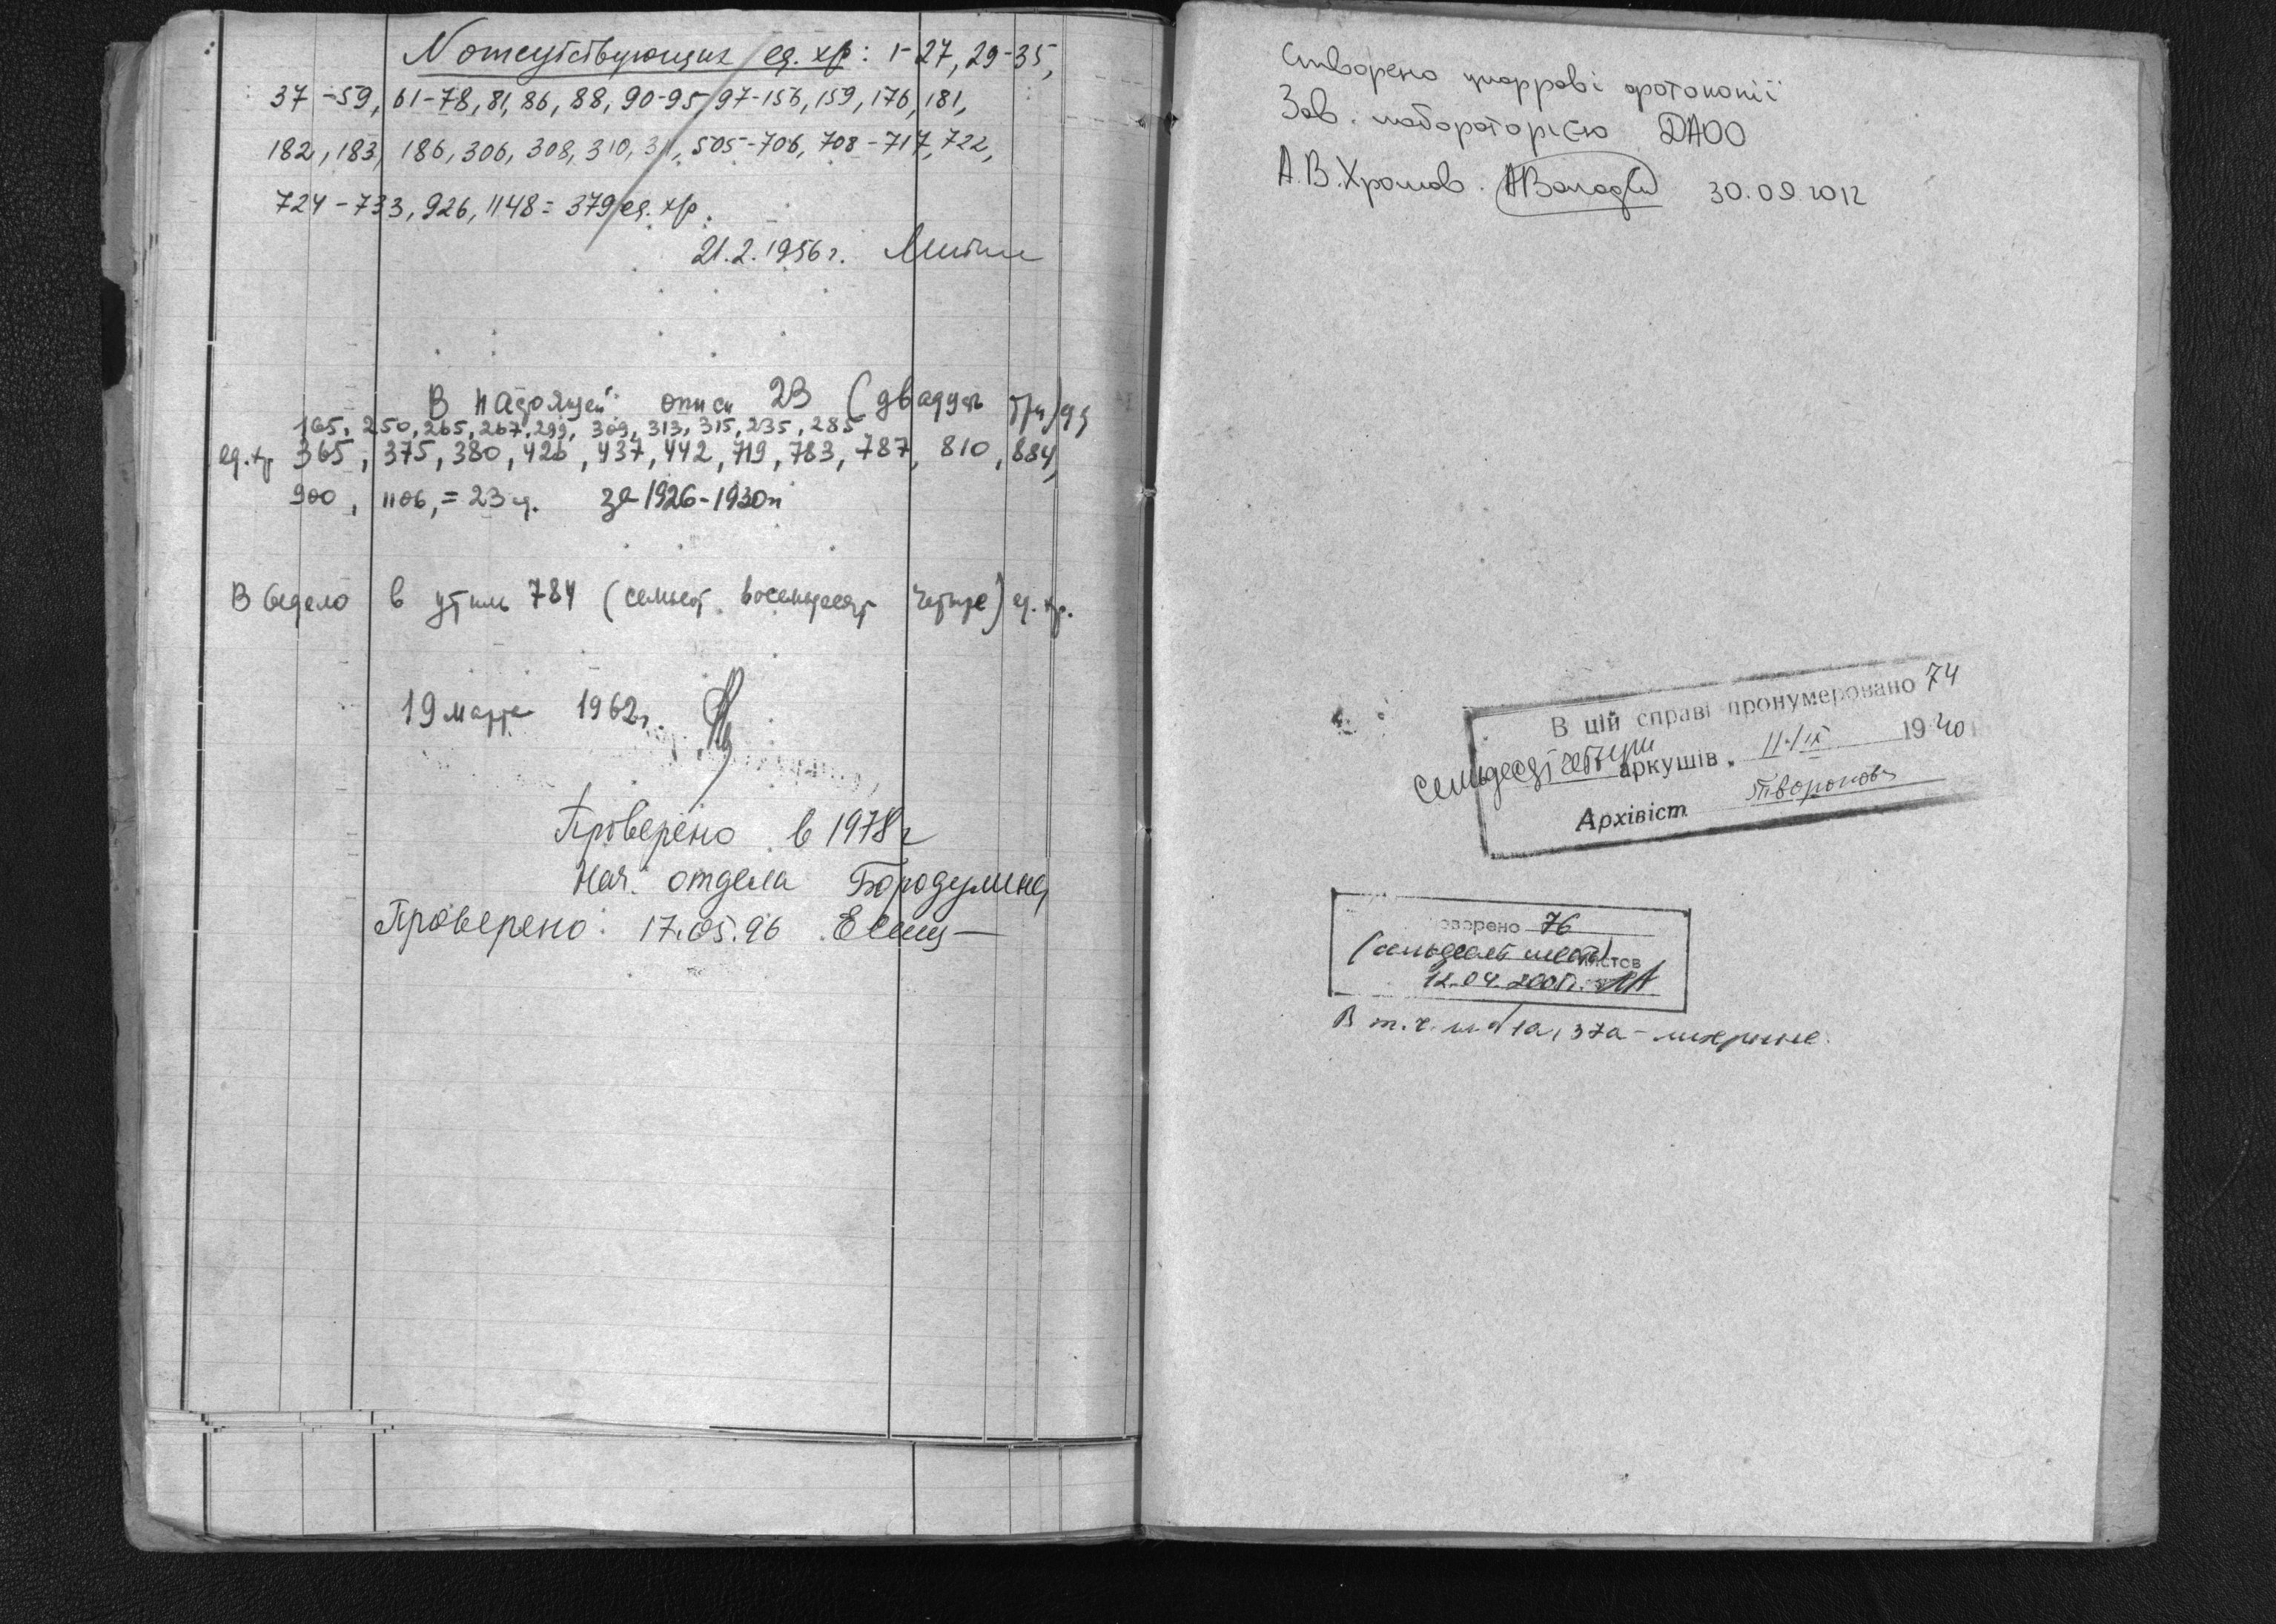 N отсутствующих ед. хр: 1-27, 29-35,
37-59, 61-78, 81, 86, 88, 90-95, 97-156, 159, 176, 181,
182, 183, 186, 306, 308, 310, 311, 505-706, 708-717, 722,
724-733, 926, 1148 = 379 ед. хр.
21.2.1956 г.
В настоящей описи 23 (двадцать три) ед
165, 250, 265, 267, 299, 309, 313, 315, 235, 285
ед. хр 365, 375, 380, 426, 437, 442, 719, 783, 787, 810, 884,
900, 1106, = 23 ед. за 1926-1930 гг
Выделено в утиль 784 (семьсот восемьдесят четыре) ед. хр.
19 марта 1962 г.
Проверено в 1978 г
Нач. отдела Бородулина
Проверено: 17.05.96
Створено цифрові фотокопії
Зав. лабораторією ДАОО
А.В. Хромов. 30.09.2012
В цій справі пронумеровано 74
семьдесят четыри аркушів. 11/IX 1940
Архівіст
76
(семьдесят шесть) листов
12.04.2005 г.
В т.ч. л. 1а, 37а - литерные.